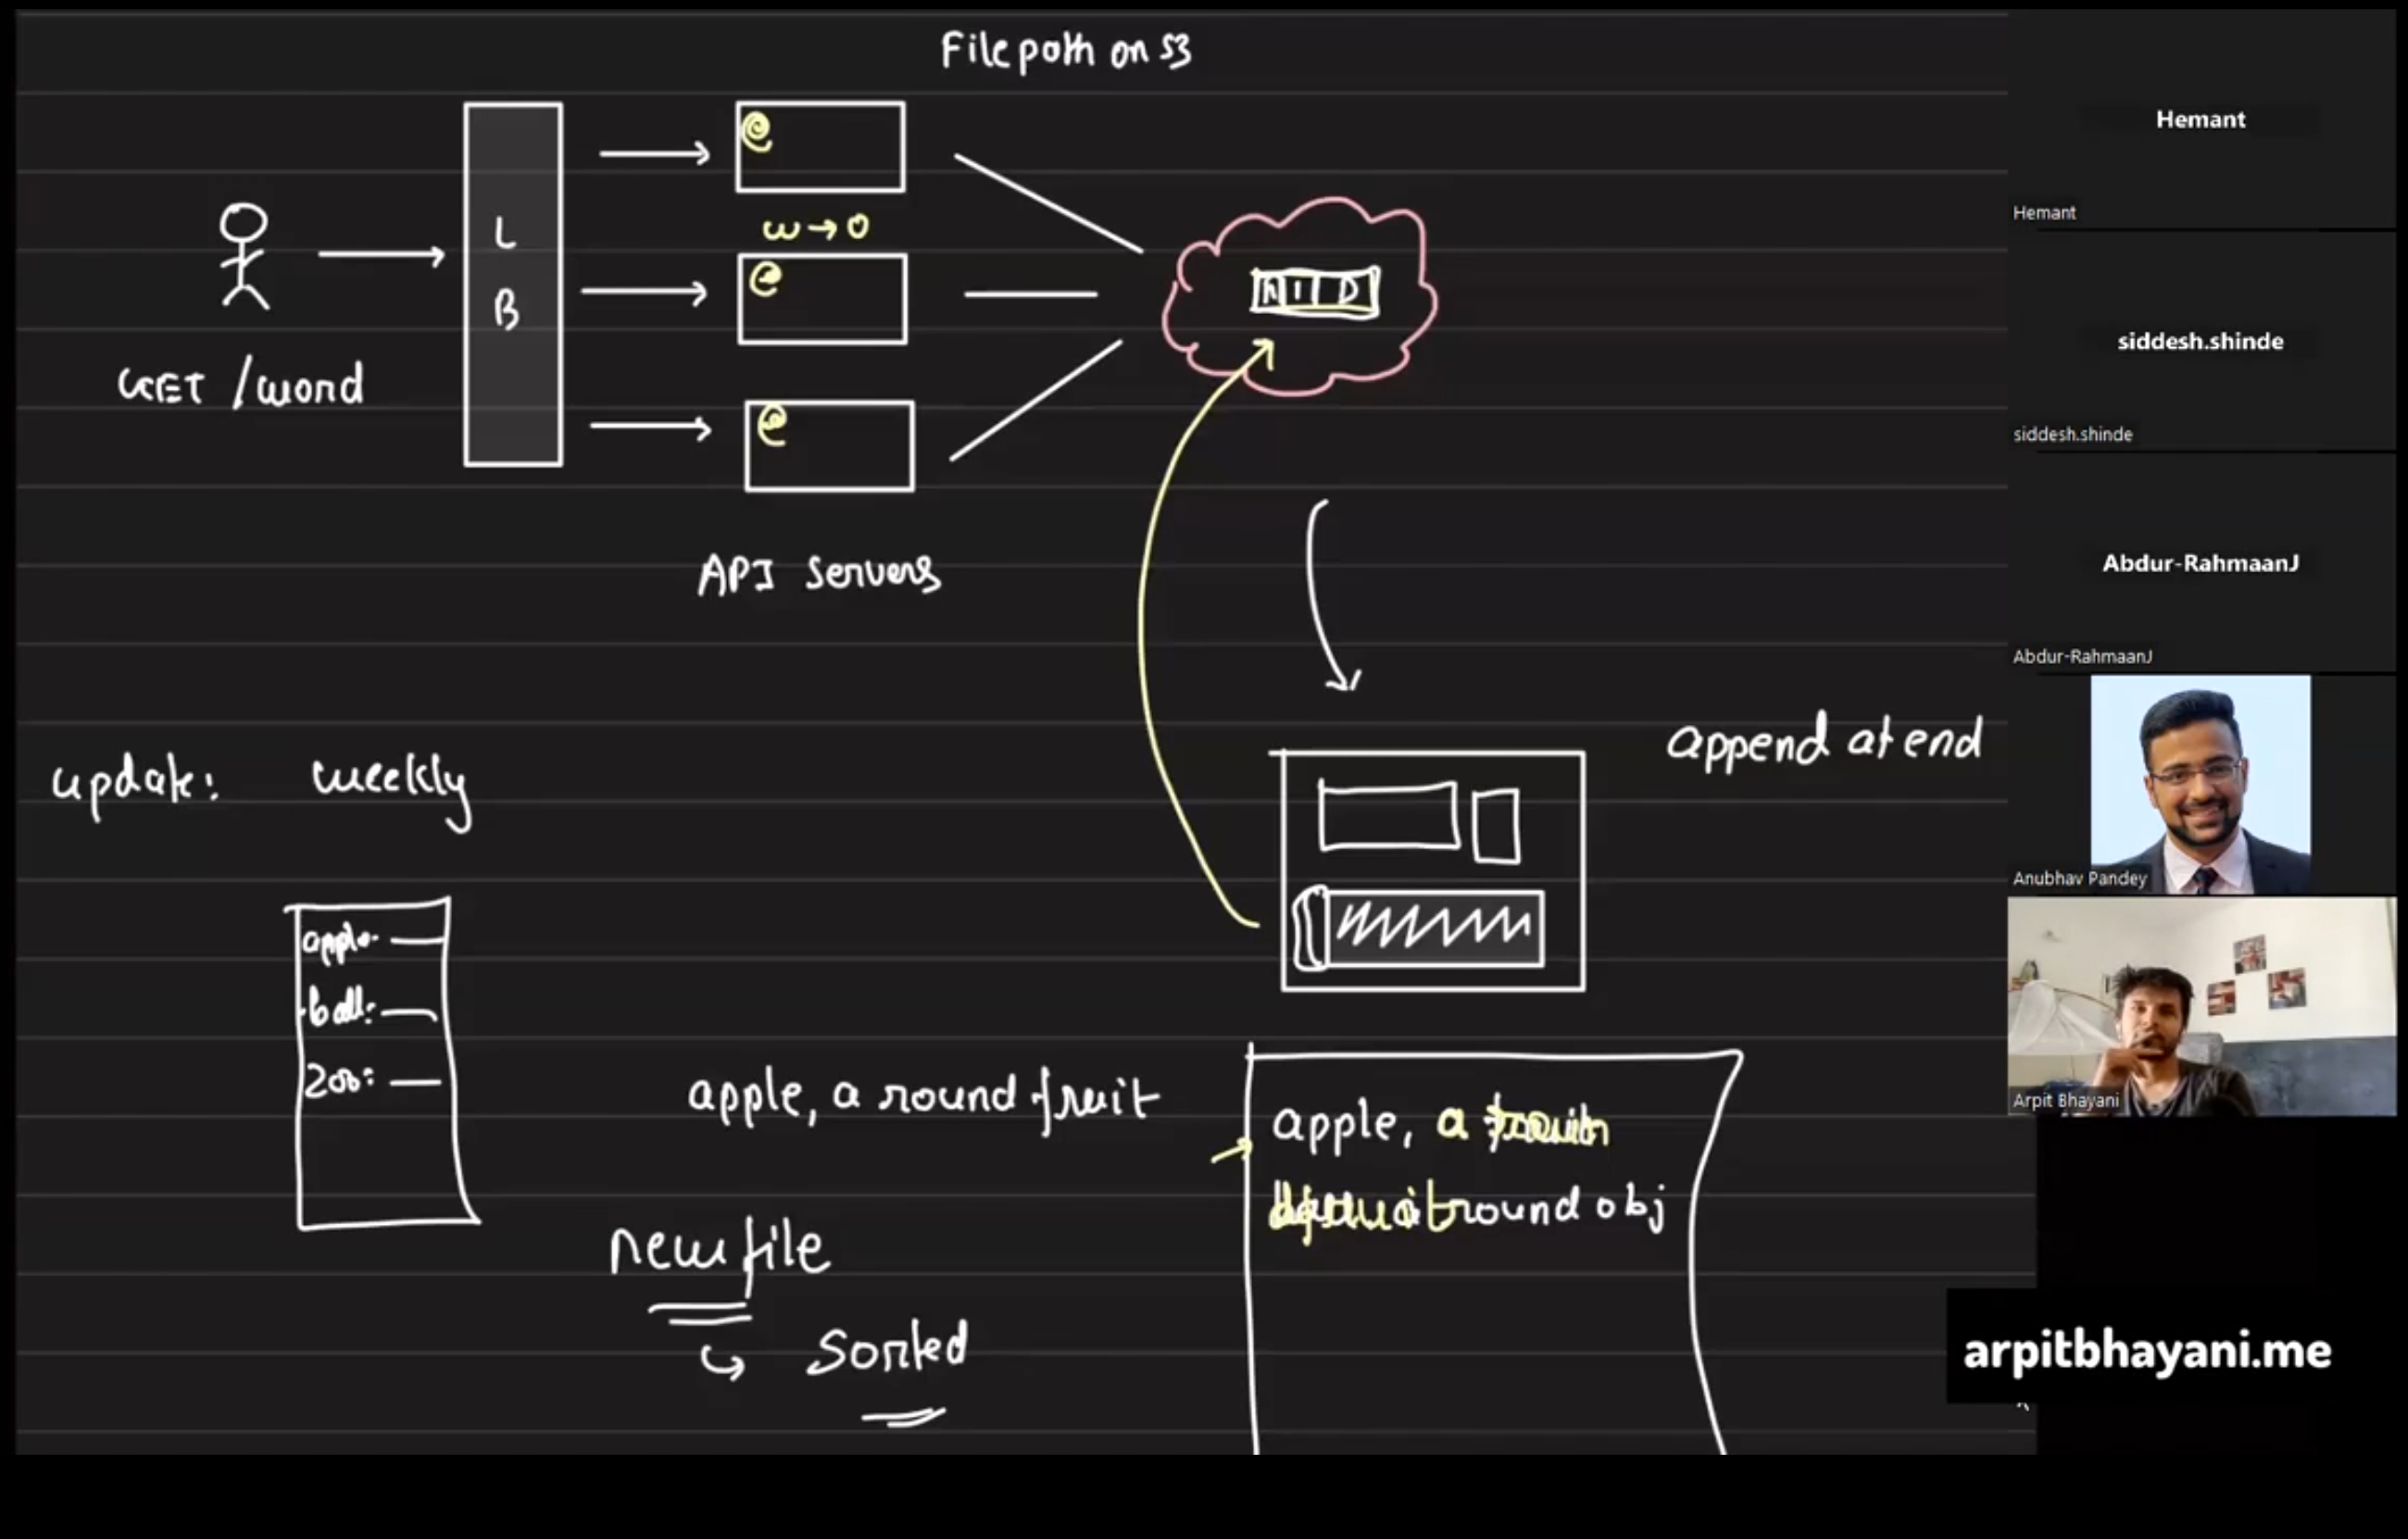 File path on S3
L
B
w → 0
GET /word
API servers
update: weekly
append at end
apple:
ball:
zoo:
apple, a round fruit
apple, a
round obj
new file
↳ sorted
Hemant
Hemant
siddesh.shinde
siddesh.shinde
Abdur-RahmaanJ
Abdur-RahmaanJ
Anubhav Pandey
Arpit Bhayani
arpitbhayani.me